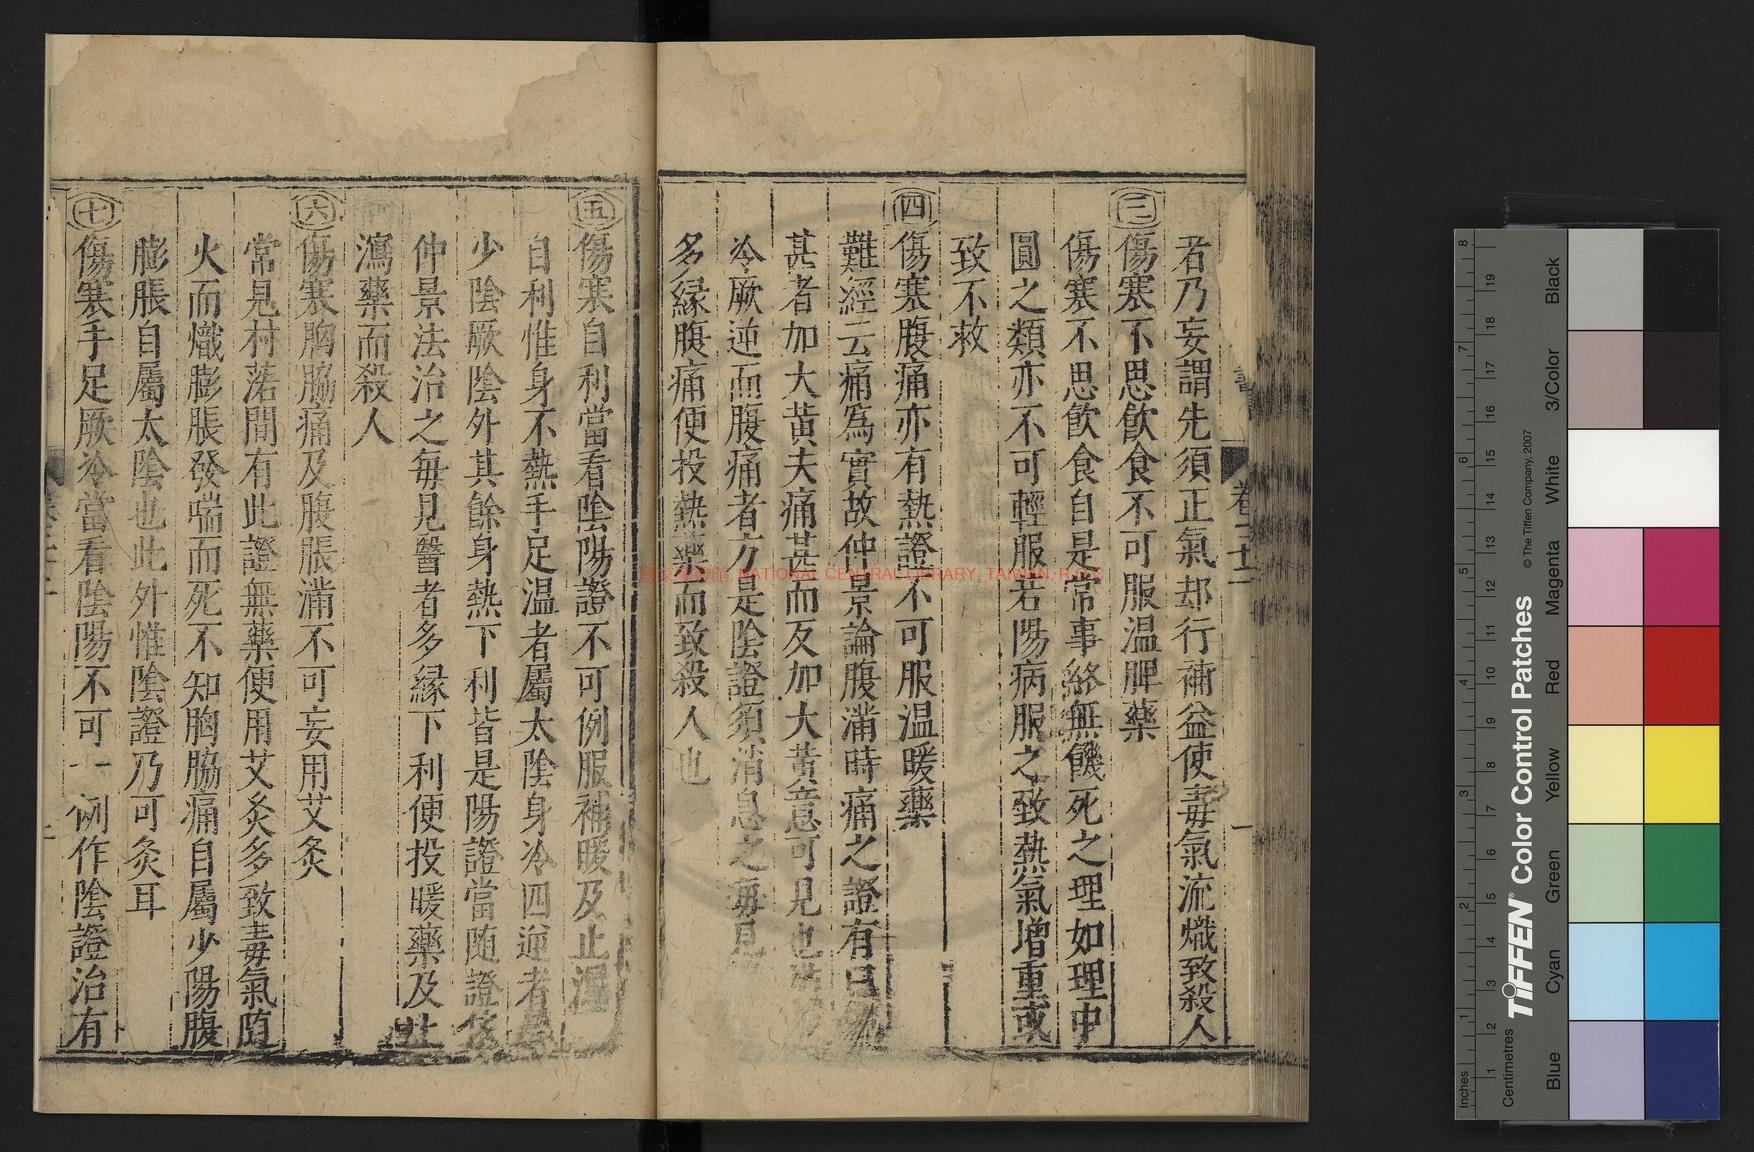 者乃妄謂先須正氣却行補益使毒氣流熾致殺人
三
傷寒不思飲食不可服温脾藥
傷寒不思飲食自是常事終無饑死之理如理中
圓之類亦不可輕服若陽病服之致熱氣增重或
致不救
四
傷寒腹痛亦有熱證不可服温暖藥
難經云痛為實故仲景論腹滿時痛之證有曰
甚者加大黄夫痛甚而反加大黄意可見也
冷厥逆而腹痛者方是陰證須消息之每見
多緣腹痛便投熱藥而致殺人也
五
傷寒自利當看陰陽證不可例服補暖及止瀉
自利惟身不熱手足温者屬太陰身冷四逆者
少陰厥陰外其餘身熱下利皆是陽證當随證依
仲景法治之毎見醫者多緣下利便投暖藥及止
瀉藥而殺人
六
傷寒胸脇痛及腹脹滿不可妄用艾灸
常見村落間有此證無藥便用艾灸多致毒氣随
火而熾膨脹發喘而死不知胸脇痛自屬少陽腹
膨脹自屬太陰也此外惟陰證乃可灸耳
七
傷寒手足厥冷當看陰陽不可一例作陰證治有
國家圖書館, NATIONAL CENTRAL LIBRARY, TAIWAN, R.O.C
TIFFEN® Color Control Patches
© The Tiffen Company, 2007
Inches
Centimetres
Blue
Cyan
Green
Yellow
Red
Magenta
White
3/Color
Black